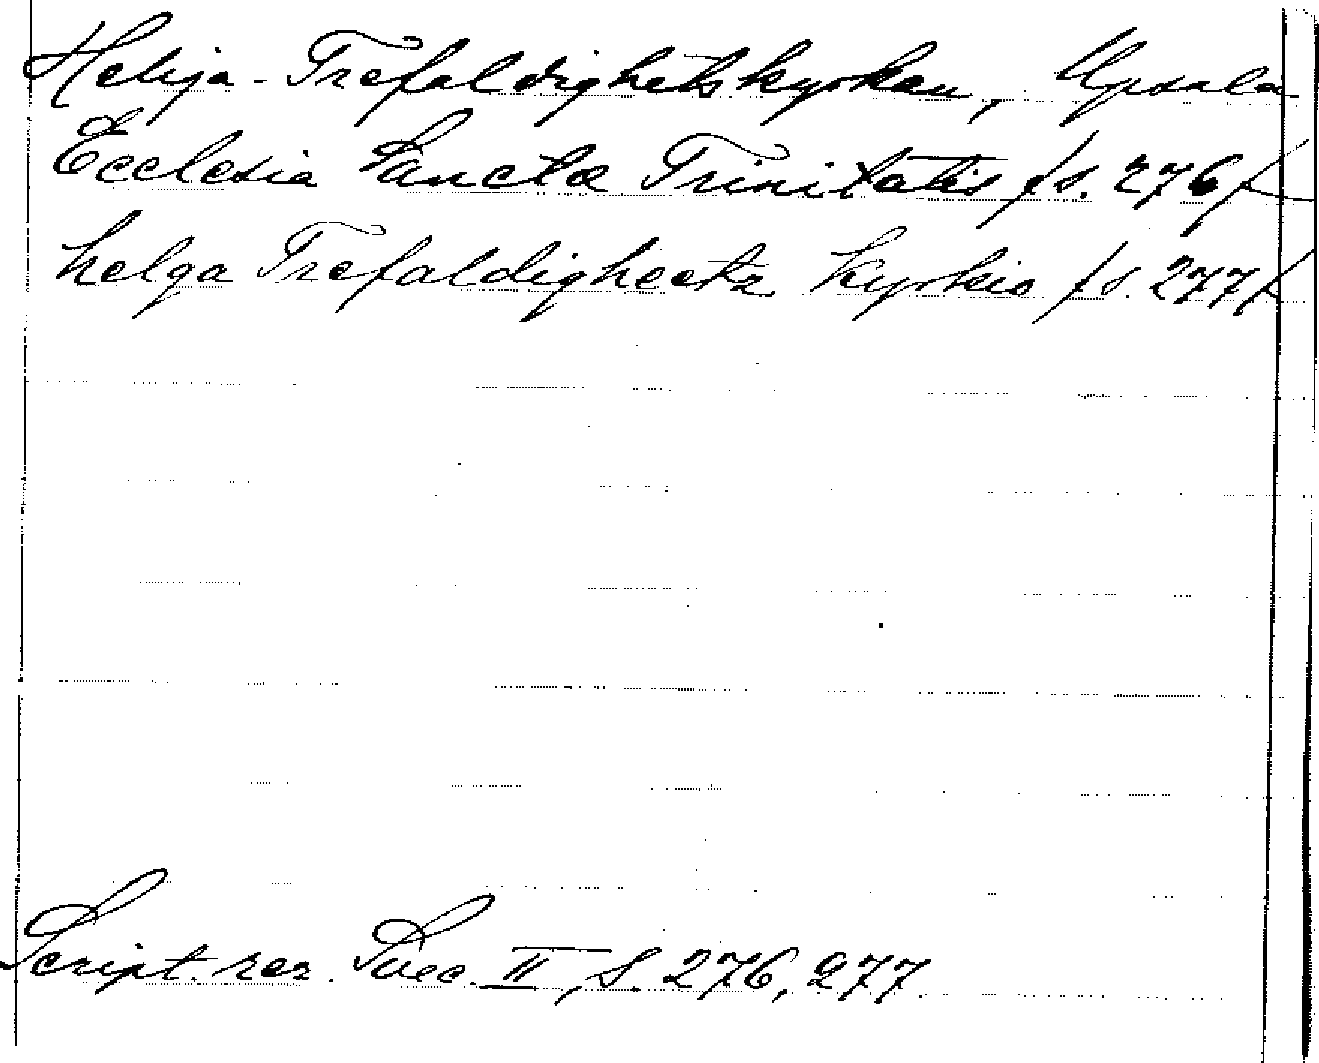 Helija-Trefaldighetskyrkan, Upsala
Ecclesia Sancta Trinitatis /s. 276/
helga Trefaldigheetz Kyrkio /s. 277/
Script. rer. Suec. II, S. 276, 277